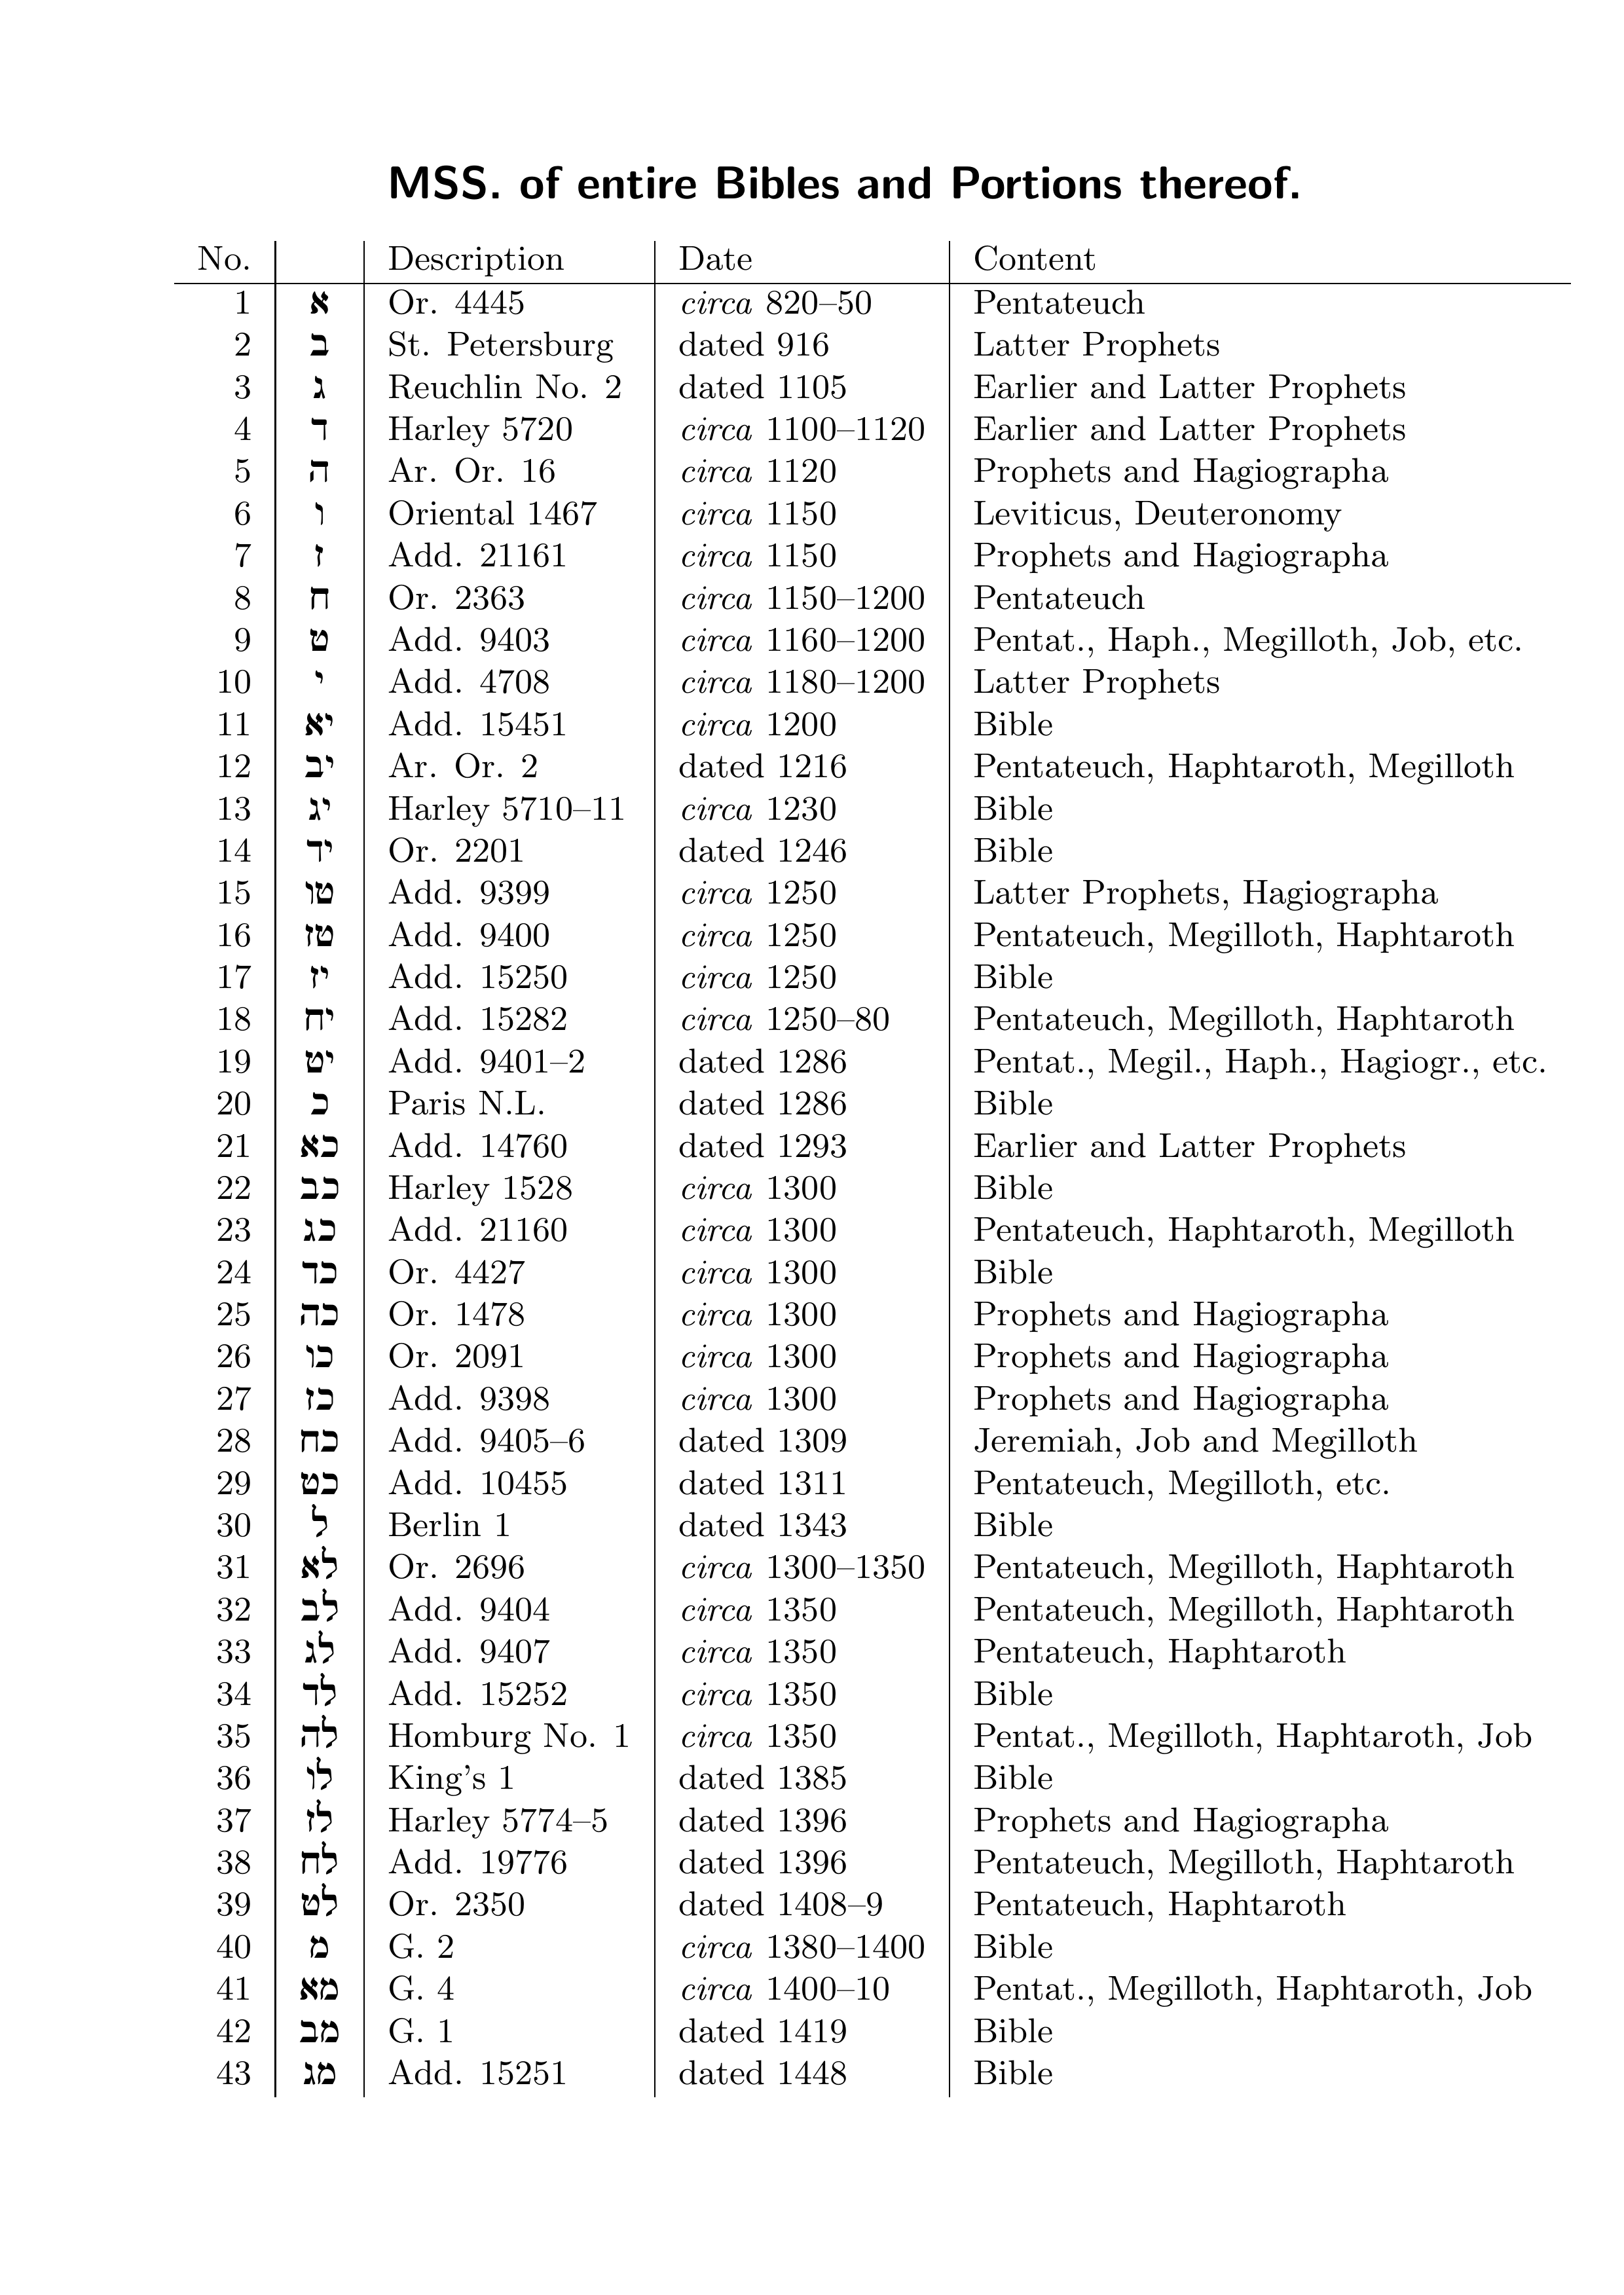 MSS. of entire Bibles and Portions thereof.
No. Description Date Content
1 א Or. 4445 circa 820–50 Pentateuch
2 ב St. Petersburg dated 916 Latter Prophets
3 ג Reuchlin No. 2 dated 1105 Earlier and Latter Prophets
4 ד Harley 5720 circa 1100–1120 Earlier and Latter Prophets
5 ה Ar. Or. 16 circa 1120 Prophets and Hagiographa
6 ו Oriental 1467 circa 1150 Leviticus, Deuteronomy
7 ז Add. 21161 circa 1150 Prophets and Hagiographa
8 ח Or. 2363 circa 1150–1200 Pentateuch
9 ט Add. 9403 circa 1160–1200 Pentat., Haph., Megilloth, Job, etc.
10 י Add. 4708 circa 1180–1200 Latter Prophets
11 יא Add. 15451 circa 1200 Bible
12 יב Ar. Or. 2 dated 1216 Pentateuch, Haphtaroth, Megilloth
13 יג Harley 5710–11 circa 1230 Bible
14 יד Or. 2201 dated 1246 Bible
15 טו Add. 9399 circa 1250 Latter Prophets, Hagiographa
16 טז Add. 9400 circa 1250 Pentateuch, Megilloth, Haphtaroth
17 יז Add. 15250 circa 1250 Bible
18 יח Add. 15282 circa 1250–80 Pentateuch, Megilloth, Haphtaroth
19 יט Add. 9401–2 dated 1286 Pentat., Megil., Haph., Hagiogr., etc.
20 כ Paris N.L. dated 1286 Bible
21 כא Add. 14760 dated 1293 Earlier and Latter Prophets
22 כב Harley 1528 circa 1300 Bible
23 כג Add. 21160 circa 1300 Pentateuch, Haphtaroth, Megilloth
24 כד Or. 4427 circa 1300 Bible
25 כה Or. 1478 circa 1300 Prophets and Hagiographa
26 כו Or. 2091 circa 1300 Prophets and Hagiographa
27 כז Add. 9398 circa 1300 Prophets and Hagiographa
28 כח Add. 9405–6 dated 1309 Jeremiah, Job and Megilloth
29 כט Add. 10455 dated 1311 Pentateuch, Megilloth, etc.
30 ל Berlin 1 dated 1343 Bible
31 לא Or. 2696 circa 1300–1350 Pentateuch, Megilloth, Haphtaroth
32 לב Add. 9404 circa 1350 Pentateuch, Megilloth, Haphtaroth
33 לג Add. 9407 circa 1350 Pentateuch, Haphtaroth
34 לד Add. 15252 circa 1350 Bible
35 לה Homburg No. 1 circa 1350 Pentat., Megilloth, Haphtaroth, Job
36 לו King’s 1 dated 1385 Bible
37 לז Harley 5774–5 dated 1396 Prophets and Hagiographa
38 לח Add. 19776 dated 1396 Pentateuch, Megilloth, Haphtaroth
39 לט Or. 2350 dated 1408–9 Pentateuch, Haphtaroth
40 מ G. 2 circa 1380–1400 Bible
41 מא G. 4 circa 1400–10 Pentat., Megilloth, Haphtaroth, Job
42 מב G. 1 dated 1419 Bible
43 מג Add. 15251 dated 1448 Bible